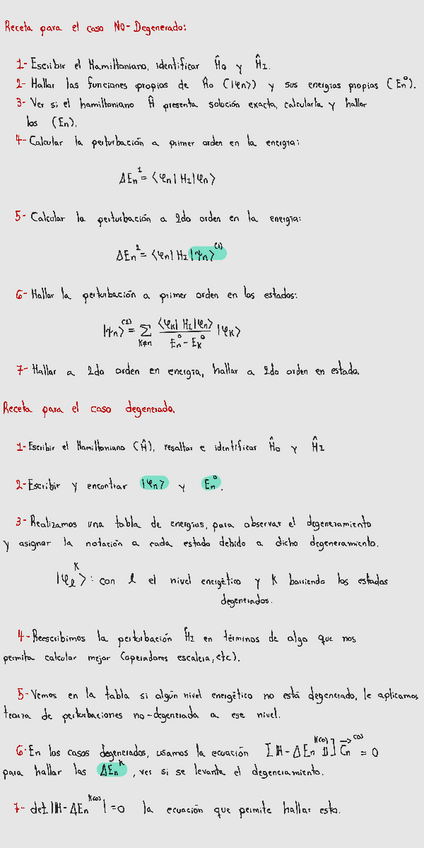 Receta para el caso NO-Degenerado:
1- Escribir el Hamiltoniano, identificar Ĥ₀ y Ĥ₁.
2- Hallar las funciones propias de Ĥ₀ (|φn⟩) y sus energías propias (En⁰).
3- Ver si el hamiltoniano Ĥ presenta solución exacta, calcularla y hallar
las (En).
4- Calcular la perturbación a primer orden en la energía:
ΔEn¹ = ⟨φn| H₁ |φn⟩
5- Calcular la perturbación a 2do orden en la energía:
ΔEn² = ⟨φn| H₁ |ψn⟩⁽¹⁾
6- Hallar la perturbación a primer orden en los estados:
|ψn⟩⁽¹⁾ = Σ_{K≠n} ⟨φK| H₁ |φn⟩ / (En⁰ - EK⁰) |φK⟩
7- Hallar a 2do orden en energía, hallar a 2do orden en estado.
Receta para el caso degenerado.
1- Escribir el Hamiltoniano (Ĥ), resaltar e identificar Ĥ₀ y Ĥ₁
2- Escribir y encontrar |φn⟩ y En⁰.
3- Realizamos una tabla de energías, para observar el degeneramiento
y asignar la notación a cada estado debido a dicho degeneramiento.
|φℓᴷ⟩: con ℓ el nivel energético y K barriendo los estados
degenerados.
4- Reescribimos la perturbación Ĥ₁ en términos de algo que nos
permita calcular mejor (operadores escalera, etc).
5- Vemos en la tabla si algún nivel energético no está degenerado, le aplicamos
teoría de perturbaciones no-degenerada a ese nivel.
6- En los casos degenerados, usamos la ecuación [H - ΔEn^{K(1)} 𝟙] C⃗n⁽⁰⁾ = 0
para hallar las ΔEnᴷ, ver si se levanta el degeneramiento.
7- det|H - ΔEn^{K(1)}| = 0 la ecuación que permite hallar esto.